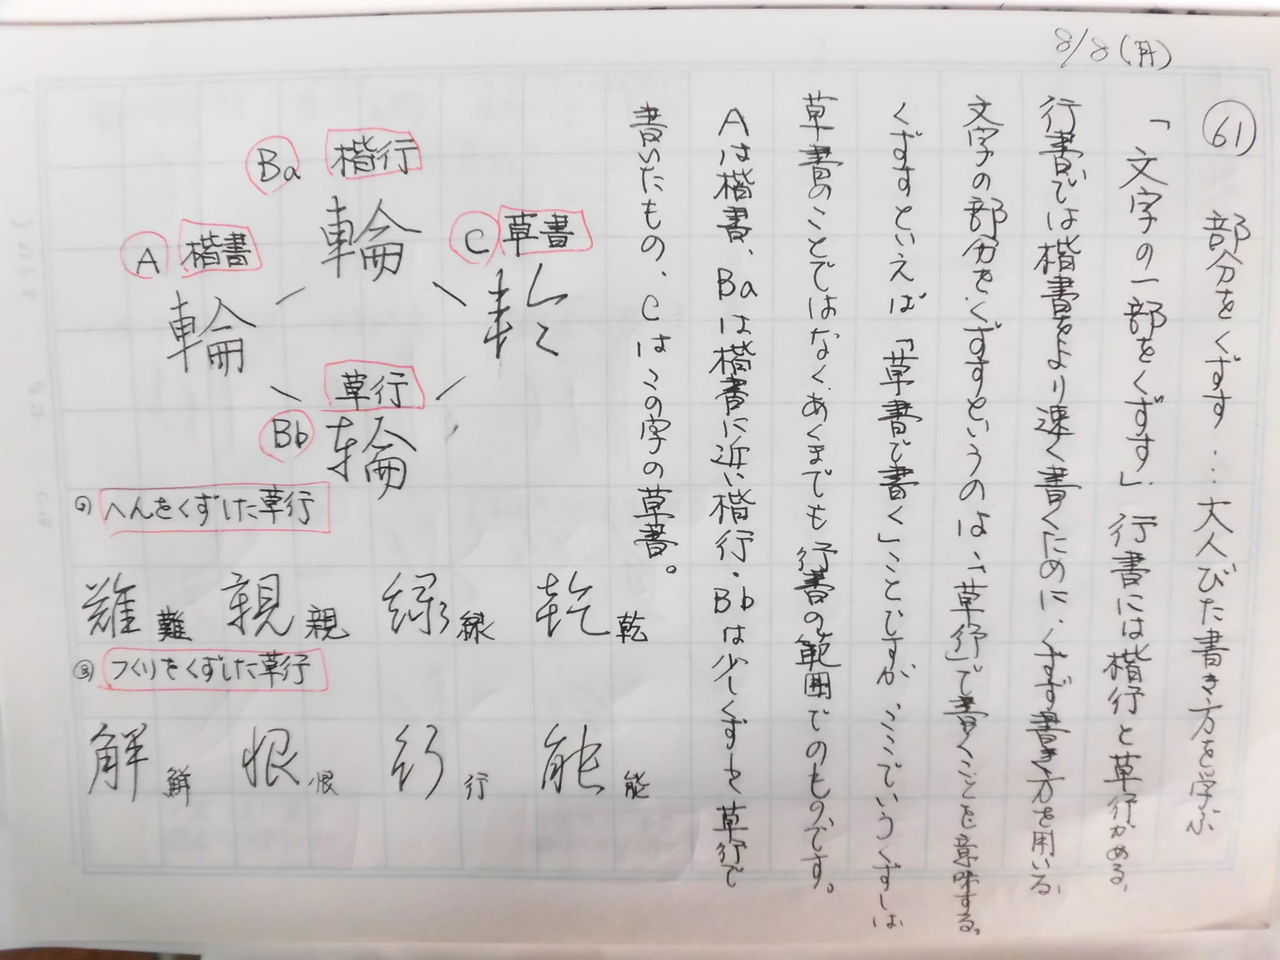 8/8(月)
61 部分をくずす…大人びた書き方を学ぶ
「文字の一部をくずす」行書には楷行と草行がある、
行書では楷書をより速く書くために、くずす書き方を用いる
文字の部分をくずすというのは、「草行」で書くことを意味する。
くずすといえば「草書で書く」ことですが、ここでいうくずしは
草書のことではなく、あくまでも行書の範囲でのものです。
Aは楷書、Baは楷書に近い楷行・Bbは少しくずした草行で
書いたもの、Cはこの字の草書。
Ba 楷行
輪
A 楷書
輪
C 草書
輪
草行
Bb
輪
へんをくずした草行
難 難 親 親 緑 緑 乾 乾
つくりをくずした草行
解 解 恨 恨 行 行 能 能